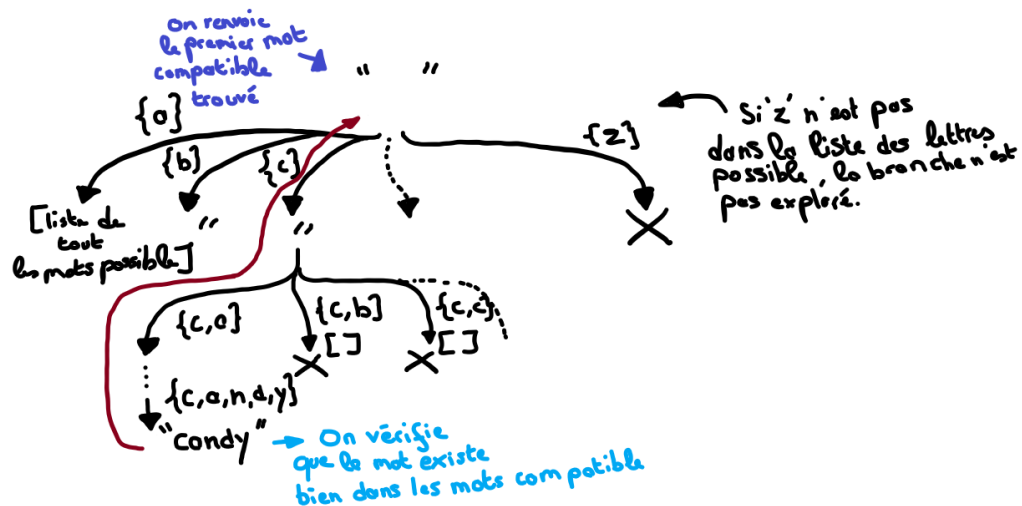 On renvoie
le premier mot
compatible
trouvé
" "
{a}
{b}
{c}
{z}
Si 'z' n'est pas
dans la liste des lettres
possible, la branche n'est
pas exploré.
[liste de
tout
les mots possible]
"
"
{c,a}
{c,b}
{c,c}
[]
[]
{c,a,n,d,y}
"candy"
On vérifie
que le mot existe
bien dans les mots compatible